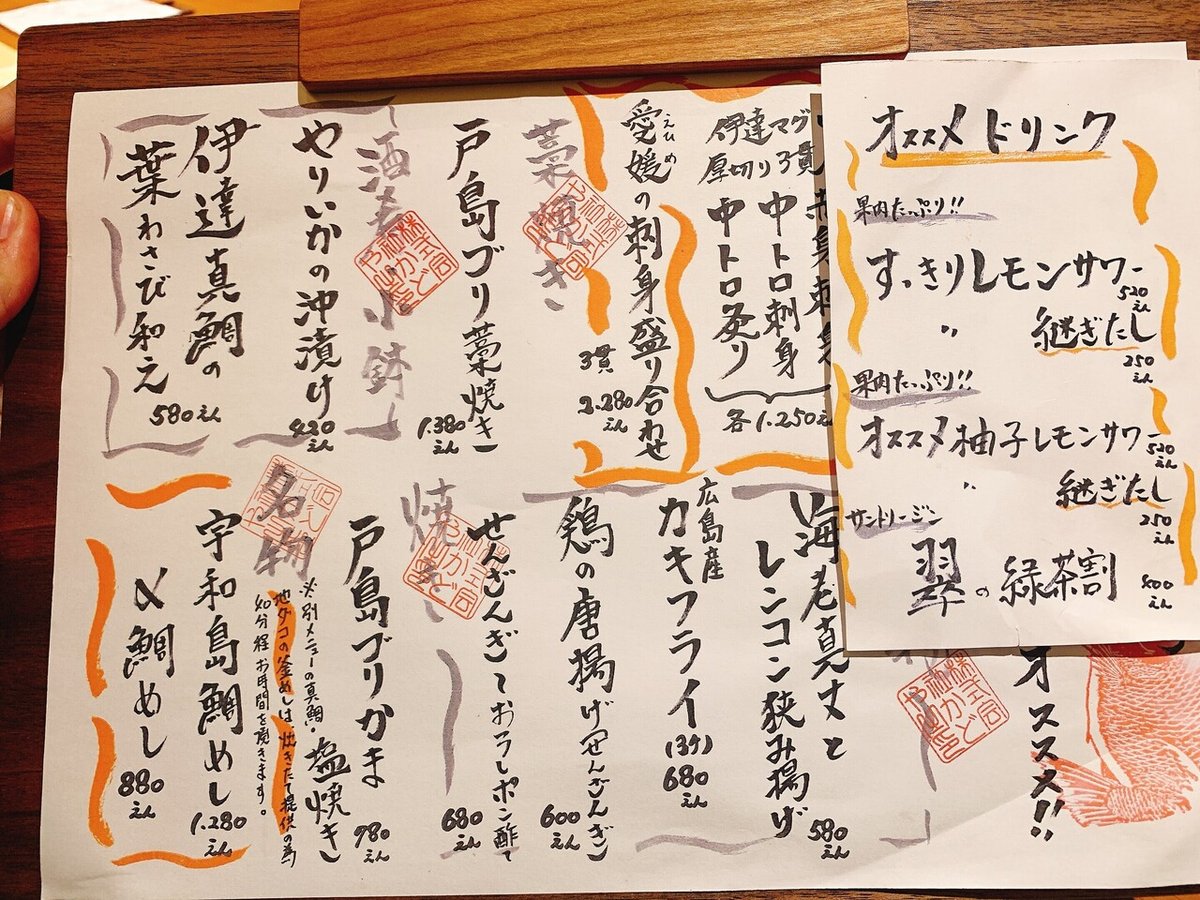 オススメドリンク
果肉たっぷり!!
すっきりレモンサワー
520えん
〃 継ぎたし
250えん
果肉たっぷり!!
オススメ柚子レモンサワー
520えん
〃 継ぎたし
250えん
サントリージン
翠の緑茶割
400えん
オススメ!!
伊達マグ
厚切り3貫
中トロ刺身
中トロ炙り
各1.250えん
愛媛の刺身盛り合わせ
えひめ
3貫
2.280えん
藁焼き
戸島ブリ藁焼き
1.380えん
酒老小鉢
やりいかの沖漬け
420えん
伊達真鯛の
葉わさび和え
580えん
海老真丈と
レンコン挟み揚げ
580えん
広島産
カキフライ(3ケ)
680えん
鶏の唐揚げ(せんざんぎ)
600えん
せんざんぎておろしポン酢て
680えん
焼き
戸島ブリかま
塩焼き
980えん
名物
※別メニューの真鯛・
地ダコの釜めしは、炊きたて提供の為
40分程お時間を頂きます。
宇和島鯛めし
1.280えん
〆鯛めし
880えん